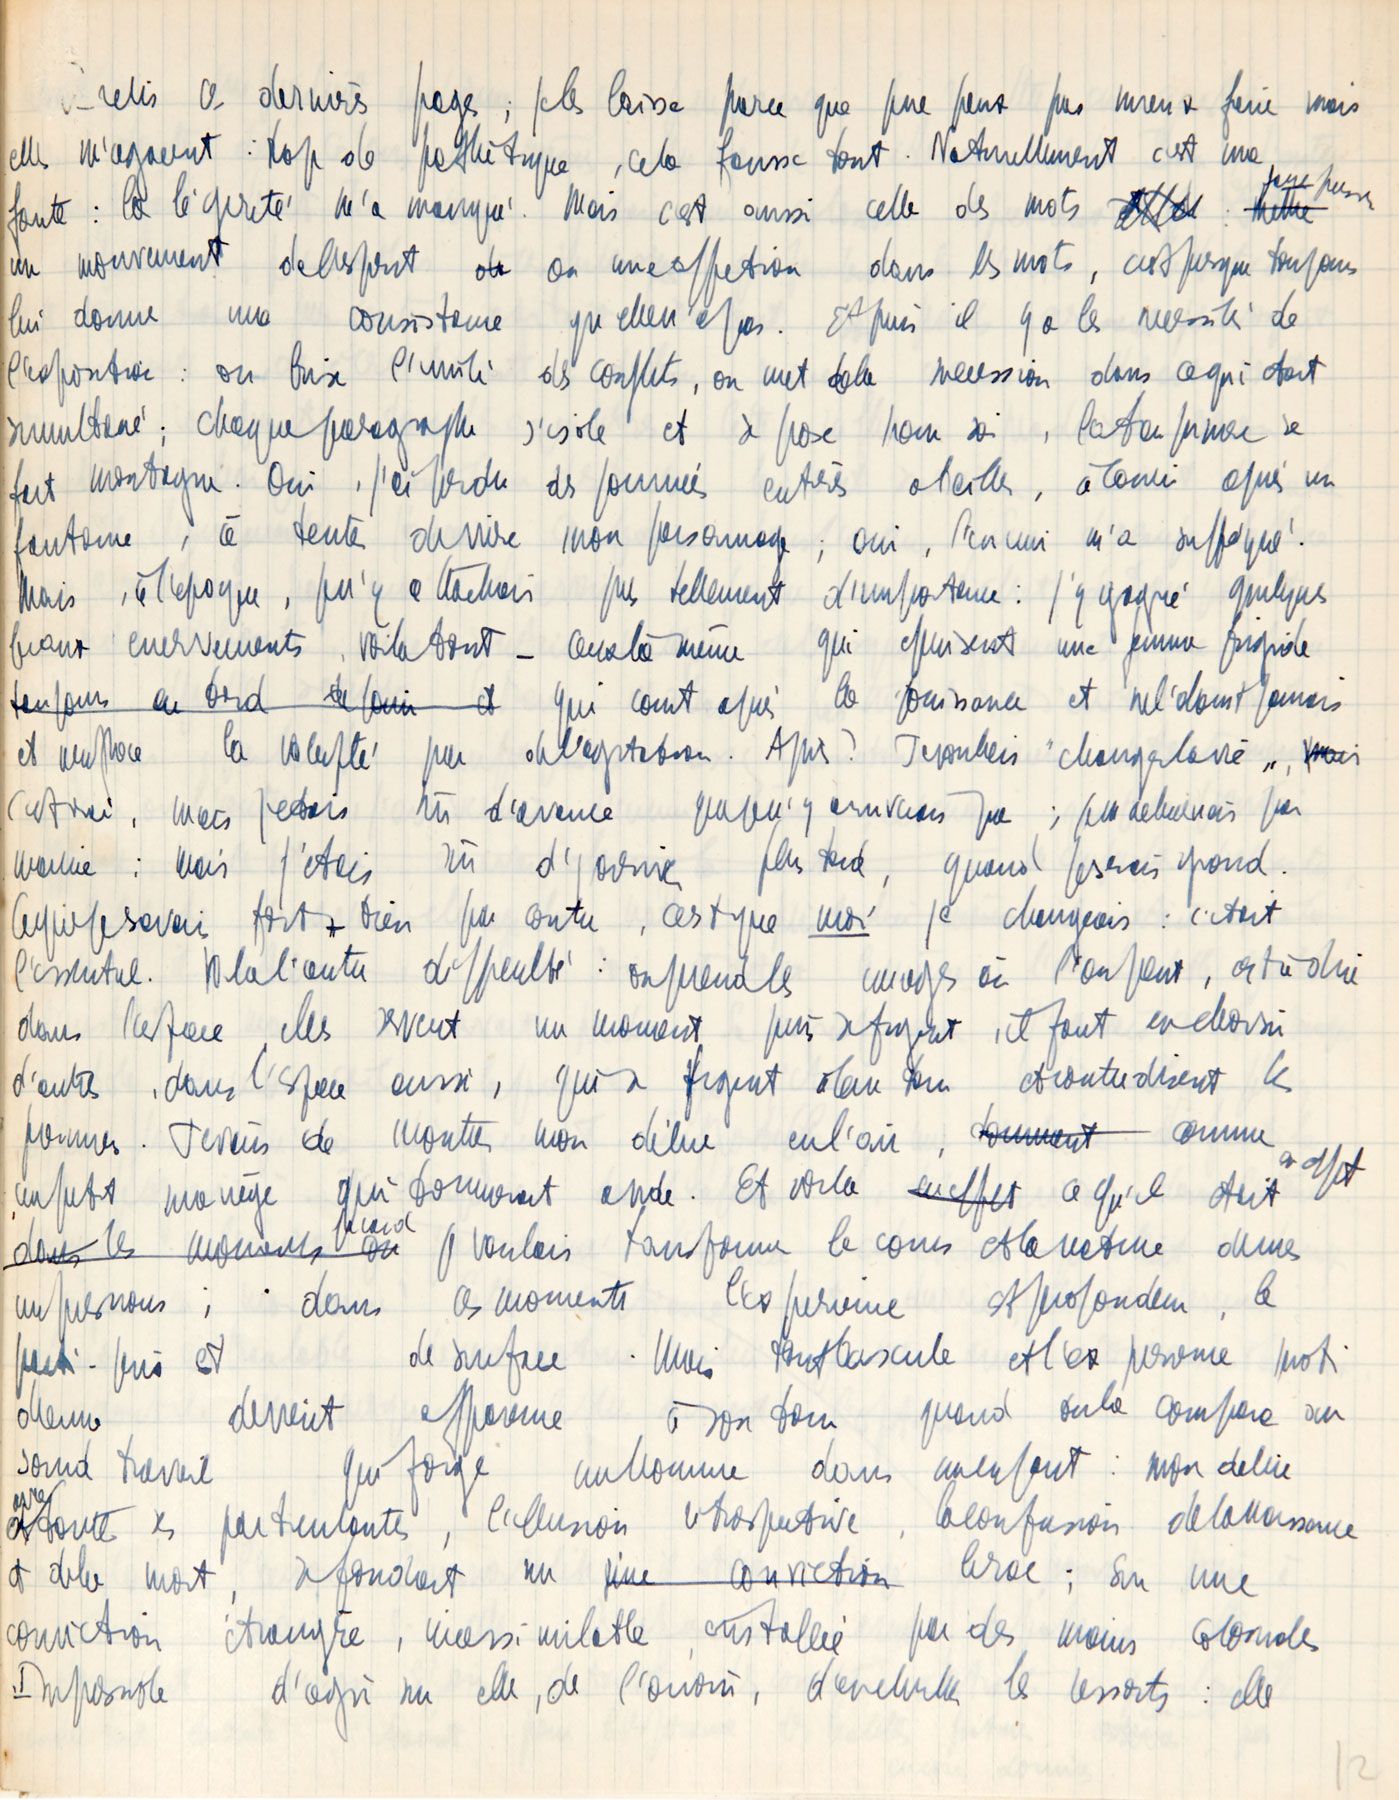 relis ces dernières pages ; je les laisse parce que je ne peux pas mieux faire mais
elles m'agacent : trop de pathétique, cela fausse tout. Naturellement c'est ma
faute : la légèreté m'a manqué. Mais c'est aussi celle des mots : mettre faire passer
un mouvement de l'esprit de ou une affection dans les mots, c'est presque toujours
lui donner une consistance qu'elle n'a pas. Et puis il y a les nécessités de
l'exposition : on brise l'unité des conflits, on met de la succession dans ce qui était
simultané ; chaque paragraphe s'isole et se pose pour soi, la taupinière se
fait montagne. Oui, j'ai perdu des journées entières à courir après un
fantôme, à tenter de vivre mon personnage ; oui, l'ennui m'a suffoqué.
Mais, à l'époque, je n'y attachais pas tellement d'importance : j'y gagné quelques
beaux énervements, voilà tout – ceux là même qui épuisent une femme frigide
toujours au bord de jouir et qui court après la jouissance et ne l'obtient jamais
et remplace la volupté par de l'agitation. Après ? Je voulais "changer la vie", mais
c'est vrai, mais j'étais sûr d'avance que je n'y arriverais pas ; je me démenais par
manie : mais j'étais sûr d'y arriver plus tard, quand je serais grand.
Ce que je savais fort bien par contre, c'est que moi je changeais : c'était
l'essentiel. Voilà l'autre difficulté : on prend les images où l'on peut, c'est à dire
dans l'espace, elles servent un moment puis se figent, il faut en choisir
d'autres, dans l'espace aussi, qui se figent à leur tour et contredisent les
premières. Je viens de montrer mon délire en l'air, tournant comme
un petit manège qui tournerait à vide. Et voilà en effet ce qu'il était en effet
dans les moments où quand je voulais transformer le cours et la nature de mes
impressions ; dans ces moments l'expérience est profondeur, le
parti-pris est de surface. Mais tout bascule et l'expérience quoti
dienne devient apparence à son tour quand on la compare au
sourd travail qui forge un homme dans un enfant : mon délire
avec toutes ses particularités, l'illusion rétrospective, la confusion de la naissance
et de la mort, se fondait sur une conviction le roc ; sur une
conviction étrangère, inassimilable, installée par des mains
Impossible d'agir sur elle, de l'avoir, d'en les ressorts : elle
12